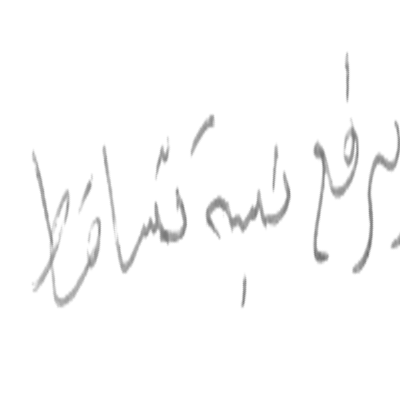 يرفع نسبة تساقط